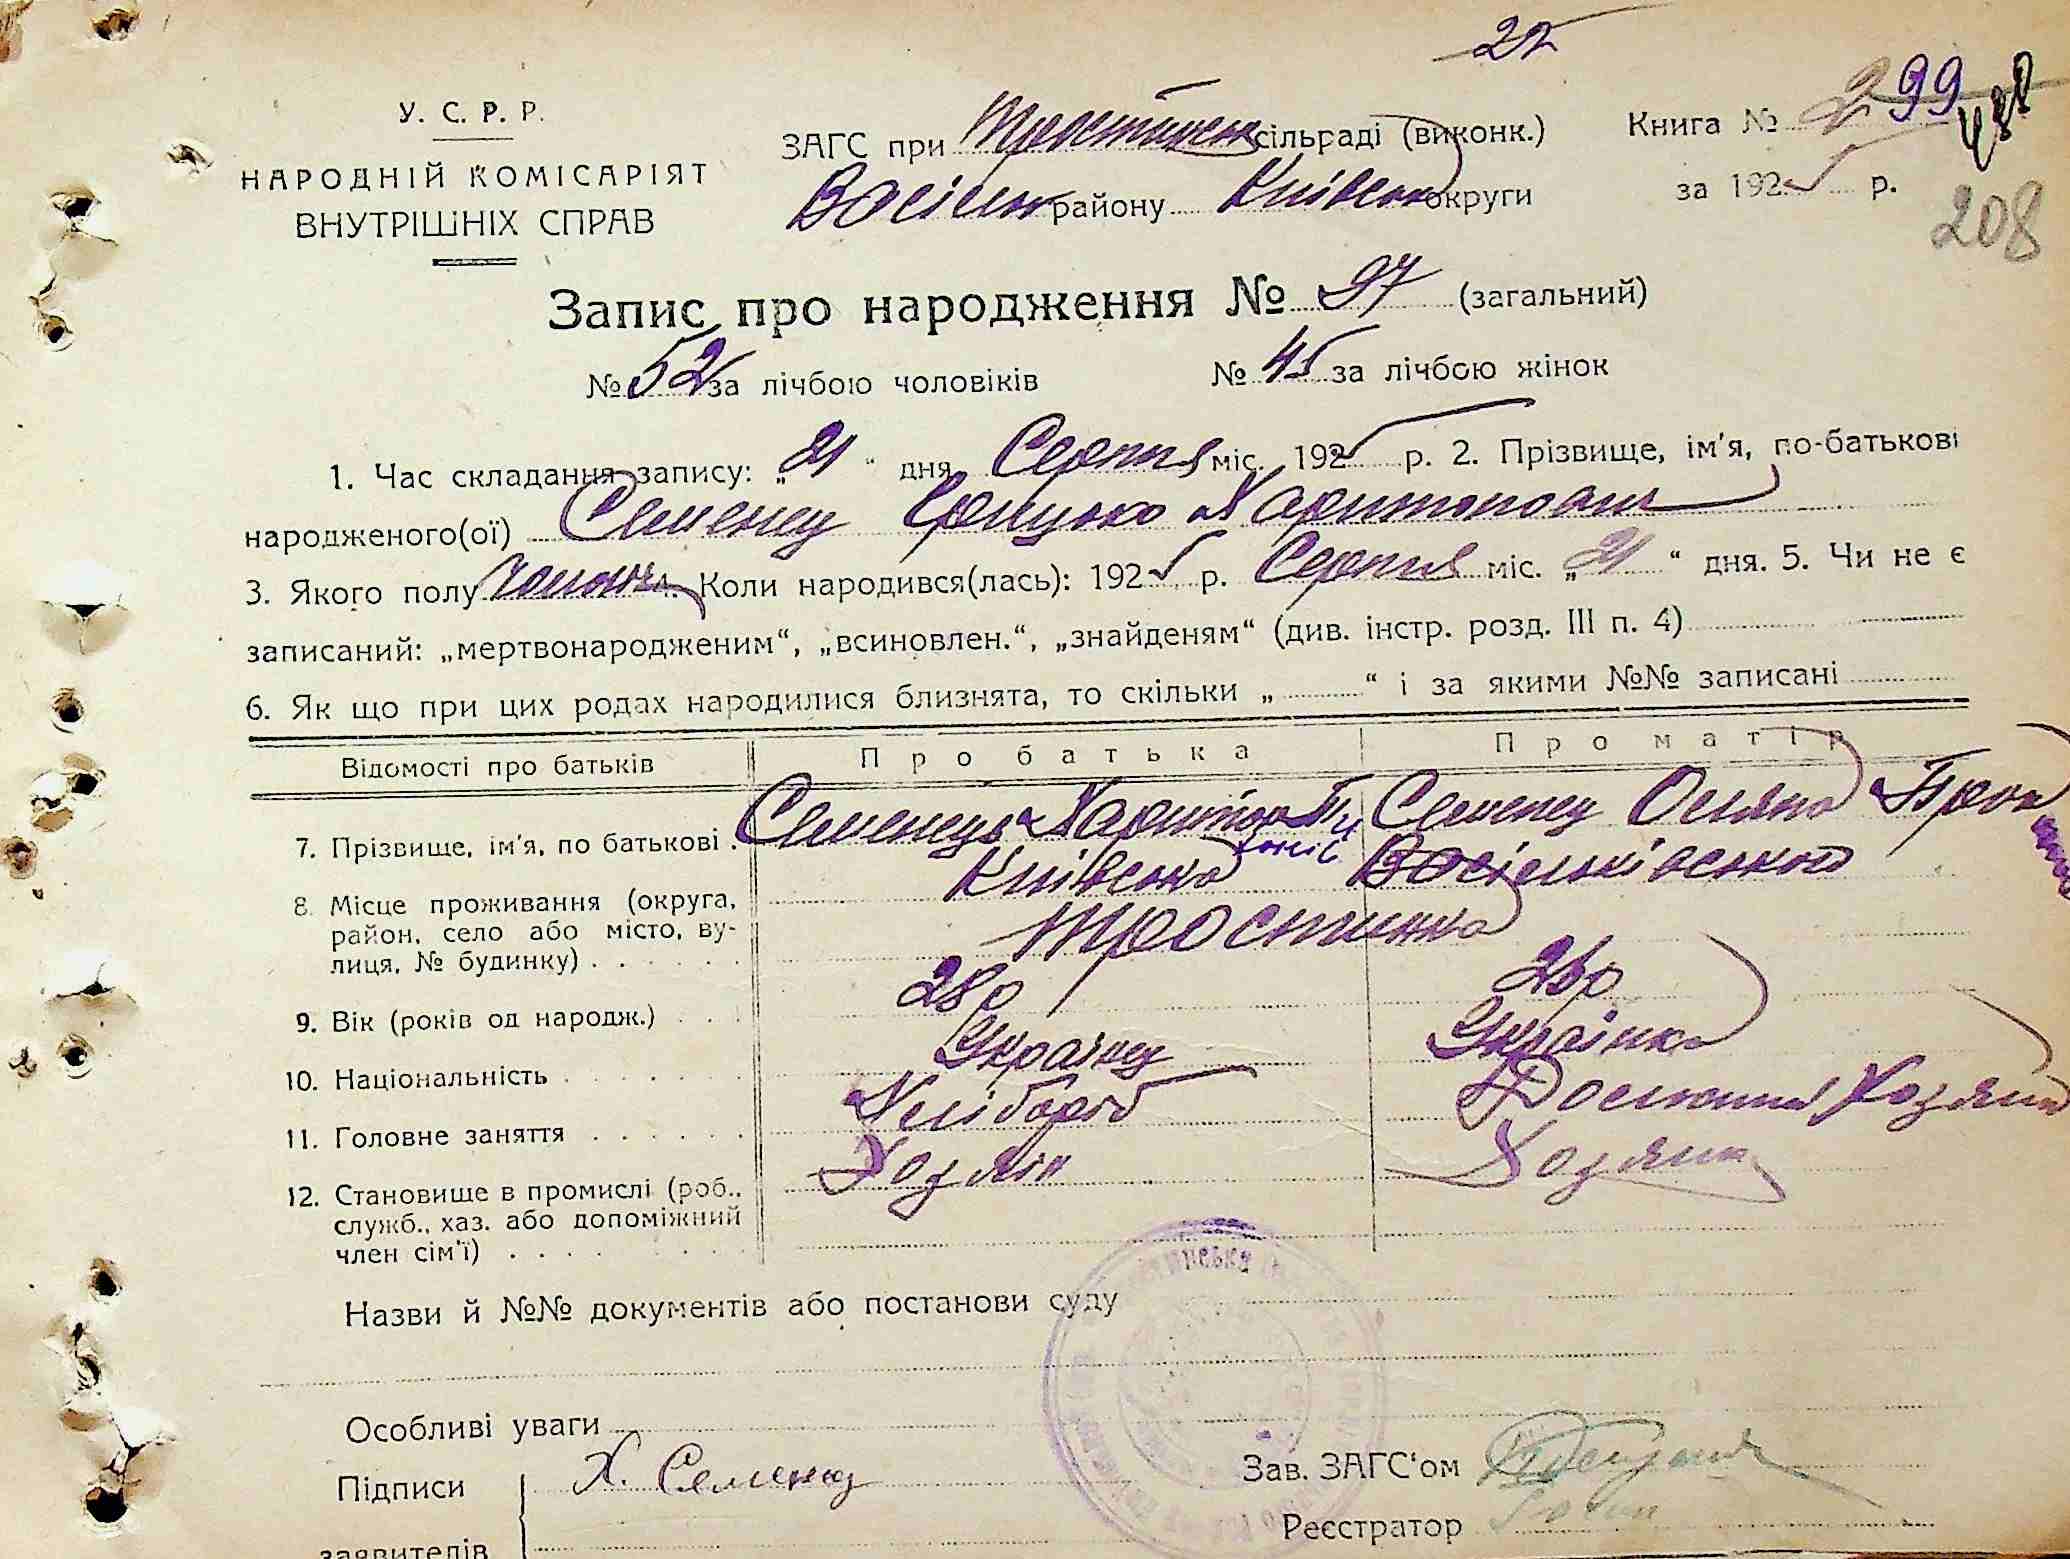 22
У. С. Р. Р.
НАРОДНІЙ КОМІСАРІЯТ
ВНУТРІШНІХ СПРАВ
ЗАГС при Тростинск сільраді (виконк.)
Васільк району Київськ округи
Книга № 299
за 1925 р.
208
Запис про народження № 97 (загальний)
№ 52 за лічбою чоловіків № 45 за лічбою жінок
1. Час складання запису: „21“ дня Серпня міс. 1925 р. 2. Прізвище, ім'я, по-батькові
народженого(ої) Семенец Грицько Харитонович
3. Якого полу чоловіч 4. Коли народився(лась): 1925 р. Серпня міс. „21“ дня. 5. Чи не є
записаний: „мертвонародженим“, „всиновлен.“, „знайденям“ (див. інстр. розд. III п. 4)
6. Як що при цих родах народилися близнята, то скільки „ “ і за якими №№ записані
Відомості про батьків Про батька Про матір
7. Прізвище, ім'я, по батькові Семенець Харитон Семенец Оляна
8. Місце проживання (округа, район, село або місто, вулиця, № будинку) Київська Васільківського
Тростинка
9. Вік (років од народж.) 28 р 26 р
10. Національність Українец Українка
11. Головне заняття Хлібороб Домашня Хозяйка
12. Становище в промислі (роб., служб., хаз. або допоміжний член сім'ї) Хозяін Хозяйка
Назви й №№ документів або постанови суду
Особливі уваги
Підписи Х. Семенец
Зав. ЗАГС'ом
заявителів
Реєстратор